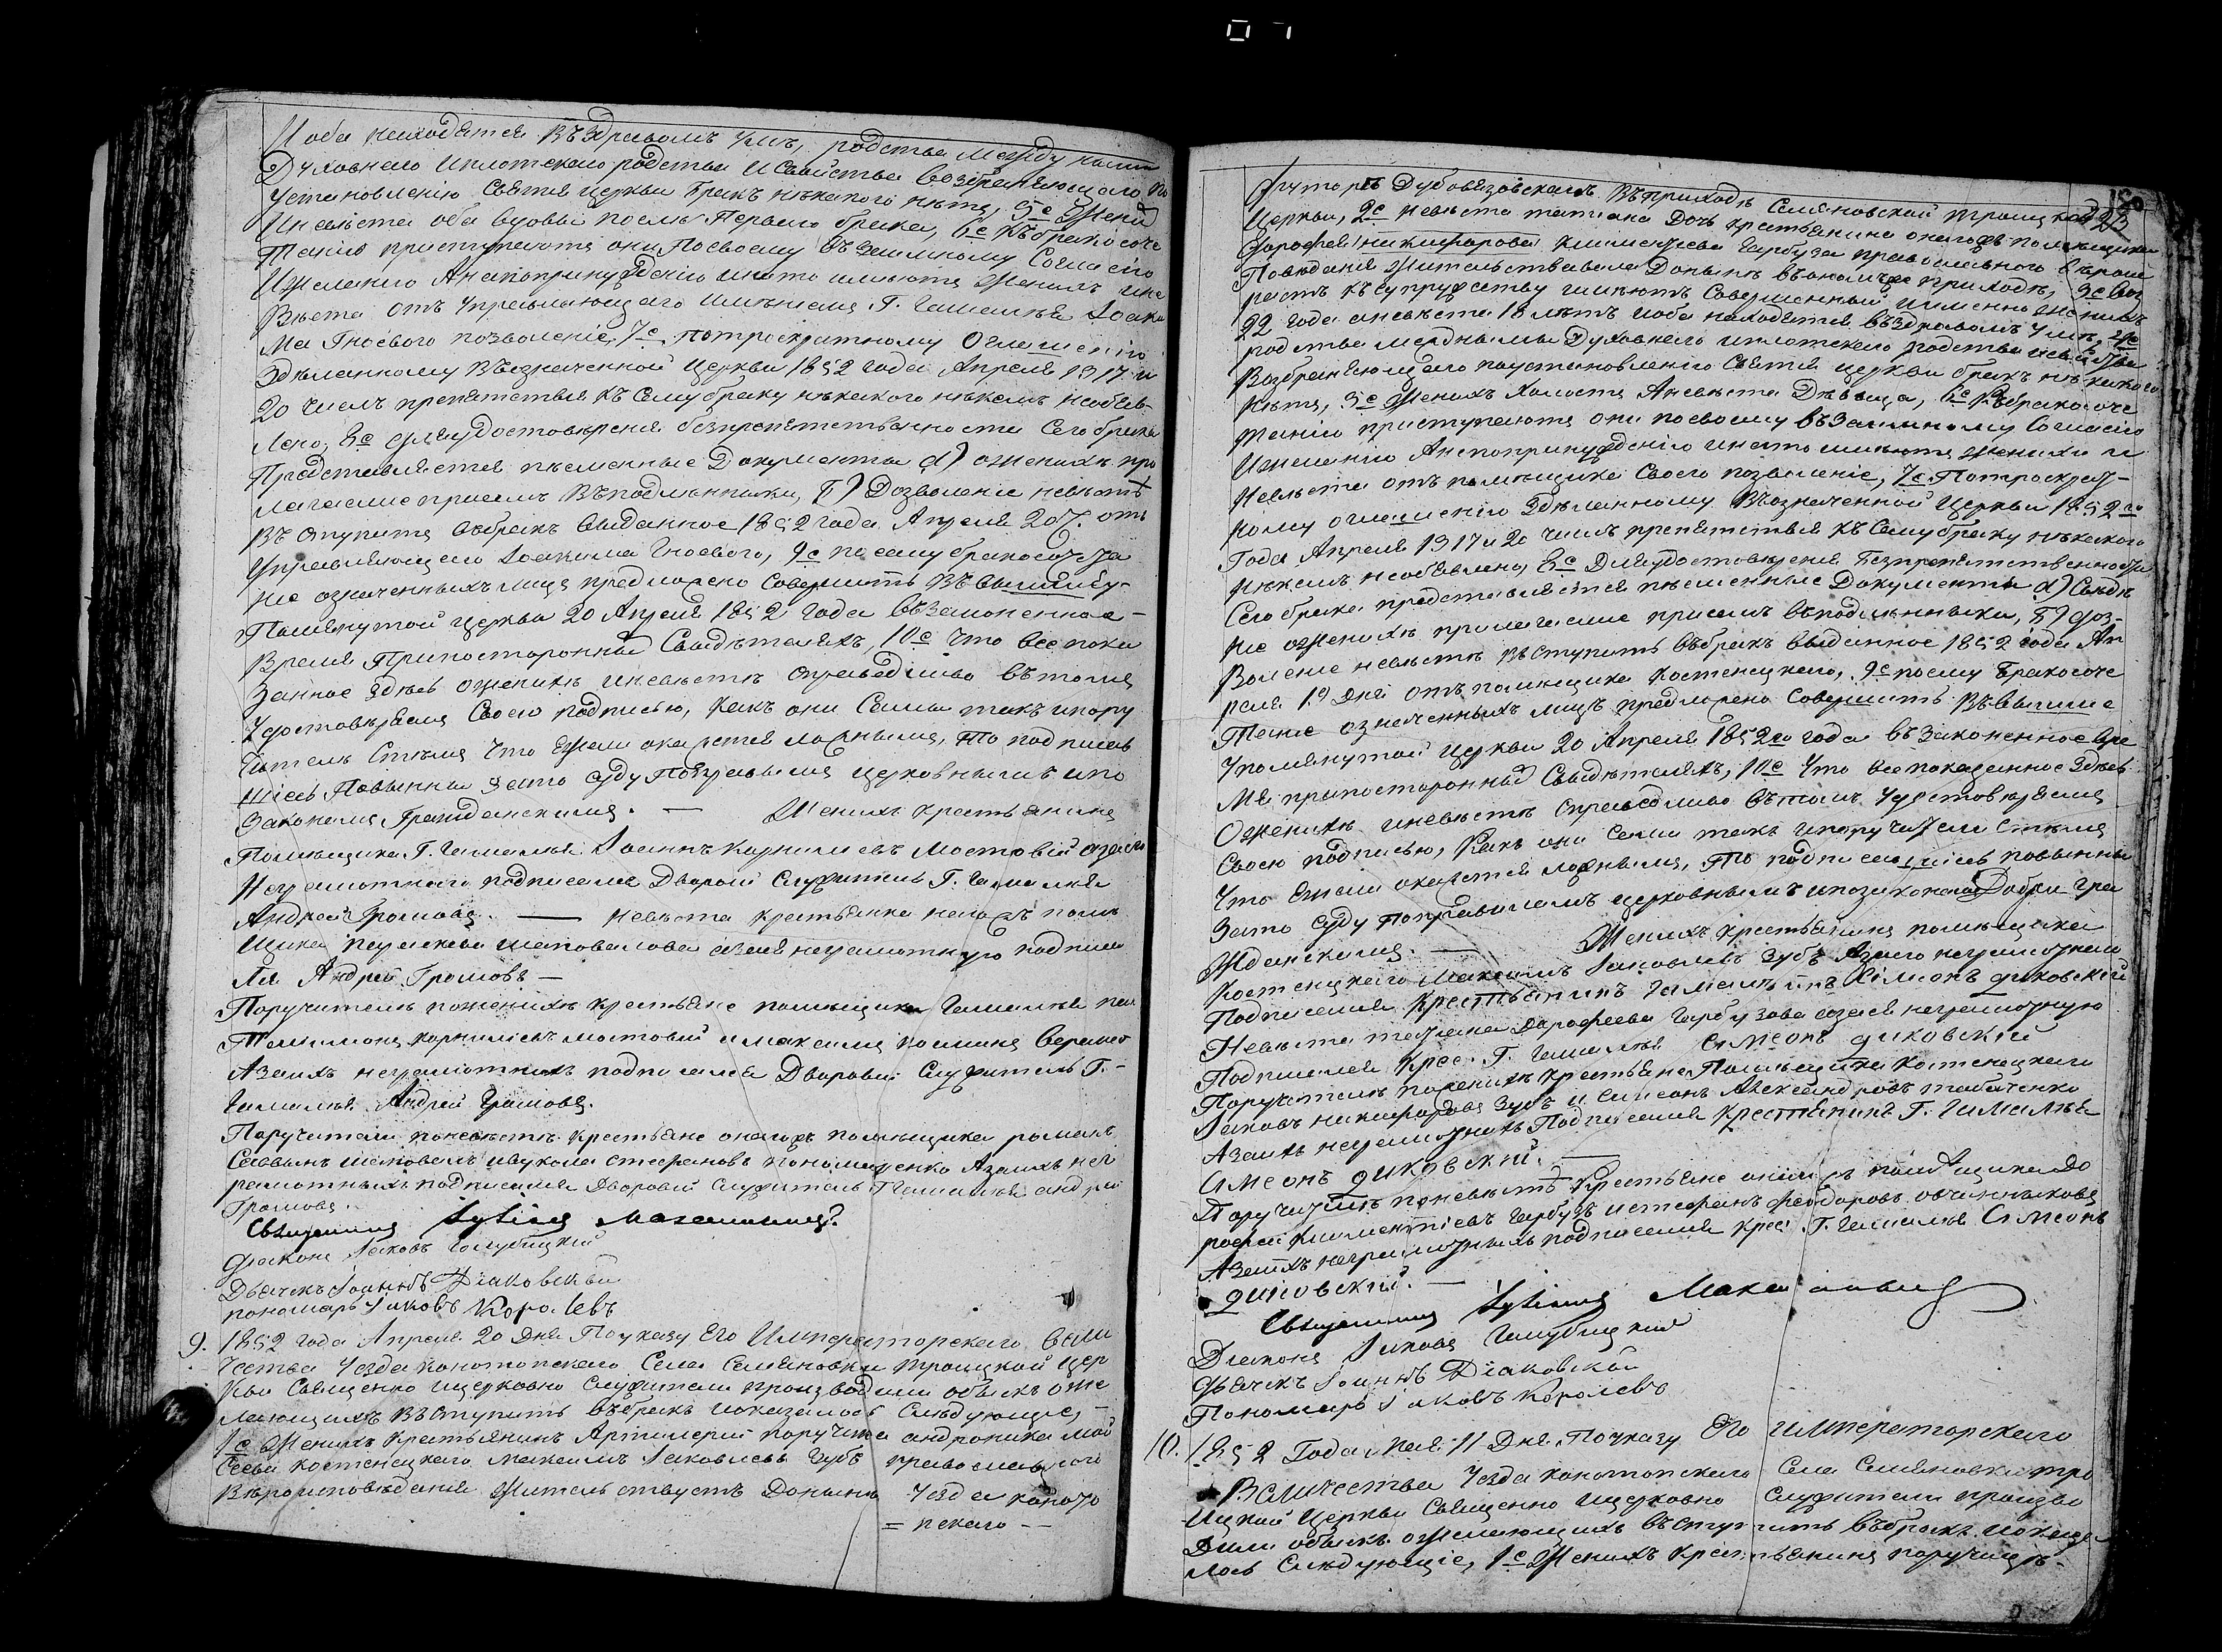 И оба находятся въ здравомъ умѣ, родства между ними
Духовнаго и плотскаго родства и свойства возбраняющаго по
Установленію Святыя церкви бракъ никакого нѣтъ, 5е Женихъ
и невѣста оба вдовы послѣ перваго брака, 6е Къ бракосоче
танію приступаютъ они по своему взаимному согласію
и желанію а не по принужденію и на то имѣютъ женихъ и не
вѣста отъ управляющаго имѣніемъ Г. Гамалѣя Іоаки
ма Гноевого позволеніе, 7е По троекратному оглашенію
здѣланному въ означенной церкви 1852 года Апреля 13 17 и
20 числъ препятствія къ сему браку никакого никемъ необъяв-
лено, 8е для удостовѣренія безпрепятственности сего брака
Представляется писменные Документы а) о женихѣ при
лагаемые при семъ въ подлинники, б) Дозволеніе невѣстѣ
вступить въ бракъ выданное 1852 года Апреля 20 ч. отъ
управляющаго Іоакима Гноевого, 9е по сему бракосочета
ніе означенныхъ лицъ предположено совершить въ вышеу-
помянутой церкви 20 Апреля 1852 года въ законенное
время при постороннихъ Свидѣтеляхъ, 10е Что все пока
занное здѣсь о женихѣ и невѣстѣ справедливо въ томъ
удостовѣряемъ своею подписью, какъ они сами такъ и пору
чители стѣмъ что ежели окажется ложнымъ, то подписав
шіесь повинны зато суду по правиламъ церковнымъ и по
законамъ Гражданскимъ. — Женихъ крестьянинъ
Помѣщика Г. Гамалѣя Іоаннъ Корниліевъ Мостовій а за него
неграмотнаго подписался Дворовій Служитель Г. Гамалѣя
Андрей Громовъ. — невѣста крестьянка того жъ помѣ
щика Шаповалова а за нея неграмотную подписал
ся Андрей Громовъ —
Поручители по женихѣ крестьяне помѣщика Гамалѣя
Корниліевъ Мостовій и Максимъ
а за нихъ неграмотныхъ подписался Дворовій Служитель Г. -
Гамалѣя Андрей Громовъ.
Поручители по невѣстѣ крестьяне онагожъ помѣщика Романъ
Саввинъ Шаповалъ и Стефановъ Пономаренко а за нихъ нег
рамотныхъ подписался Дворовій Служитель Гамалѣя Андрей
Громовъ.
Священникъ
Діаконъ Іаковъ Голубицкій
Дьячекъ Іоаннъ Діаковскій
пономарь Іаковъ Королевъ
9. 1852 года Апреля 20 Дня По указу Его Императорскаго Вели
чества Уезда Конотопскаго Села Семяновки Троицкой цер
кви Священно и церковно служители производили обыскъ о же
лающихъ вступить въ бракъ и оказалось слѣдующіе, -
1е Женихъ крестьянинъ Артилеріи поручика Андроника Мой
сеева Костенецкаго Максимъ Іаковлевъ Зубъ православного
вѣроисповѣданія жительствуетъ Донынѣ Уезда Коното
= пскаго --
хуторѣ Дубовязовскомъ въ приходѣ Семяновской Троицкой
церкви, 2е невѣста Татіана Дочь крестьянина онагожъ помѣщика
Дорофея (никифорова) Климентіева Гарбуза православного вѣроис
повѣданія жительствовала Донынѣ въ ономъ же приходѣ, 3е Воз
растъ къ супружеству имѣютъ совершенный именно женихъ
22 года а невѣста 18 лѣтъ и оба находятся въ здравомъ умѣ, 4е
родства межъ ними Духовнаго и плотскаго родства и свойства
возбраняющаго по установленію Святыя церкви бракъ никакого
нѣтъ, 5е Женихъ холостъ а невѣста Дѣвица, 6е Къ бракосоче
танію приступаютъ они по своему взаимному согласію
и желанію а не по принужденію и на то имѣютъ женихъ и
невѣста отъ помѣщика своего позволеніе, 7е По троекрат-
ному оглашенію здѣланному въ означенной церкви 1852го
года Апреля 13 17 и 20 числъ препятствія къ сему браку никакого
никемъ необъявлено, 8е Для удостовѣренія безпрепятственности
сего брака представляется писменные Документы а)
о женихѣ прилагаемые при семъ въ подлинники, б) доз-
воленіе невѣстѣ вступить въ бракъ выданное 1852 года Ап
реля 19 дня отъ помѣщика Костенецкаго, 9е по сему бракосоче
таніе означенныхъ лицъ предположено совершить въ выше
упомянутой церкви 20 Апреля 1852го года въ законенное вре
мя при постороннихъ Свидѣтеляхъ, 10е Что все показанное здѣсь
о женихѣ и невѣстѣ справедливо въ томъ удостовѣряемъ
своею подписью, какъ они сами такъ и поручители стѣмъ
что ежели окажется ложнымъ, то подписавшіесь повинны
зато суду по правиламъ церковнымъ и по законамъ Гра
жданскимъ. — Женихъ крестьянинъ помѣщика
Костенецкаго Максимъ Іаковлевъ Зубъ а за него неграмотнаго
подписался крестьянинъ Гамалѣя Симеонъ Диковскій
Невѣста Татіана Дорофеева Гарбузова а за нея неграмотную
подписался крес. Г. Гамалѣя Симеонъ Диковскій
Поручители по женихѣ крестьяне помѣщика Костенецкаго
Іаковъ Никифоровъ Зубъ и Симеонъ Александровъ Табаченко
а за нихъ неграмотныхъ подписался крестьянинъ Г. Гамалѣя
Симеонъ Диковскій. —
Поручители по невѣстѣ крестьяне онагожъ помѣщика До
рофей Климентіевъ Гарбузъ и Стефанъ Феодоровъ Овчинниковъ
а за нихъ неграмотныхъ подписался крес. Г. Гамалѣя Симеонъ
Диковскій. —
Священникъ
Діаконъ Іаковъ Голубицкій
Дьячекъ Іоаннъ Діаковскій
Пономарь Іаковъ Королевъ
10. 1852 Года Мая 11 Дня По указу Его Императорскаго
Величества Уезда Конотопскаго Села Семяновки Тро
ицкой церкви Священно и церковно служители произво
дили обыскъ о желающихъ вступить въ бракъ и оказа
лось слѣдующіе, 1е Женихъ крестьянинъ поручица-